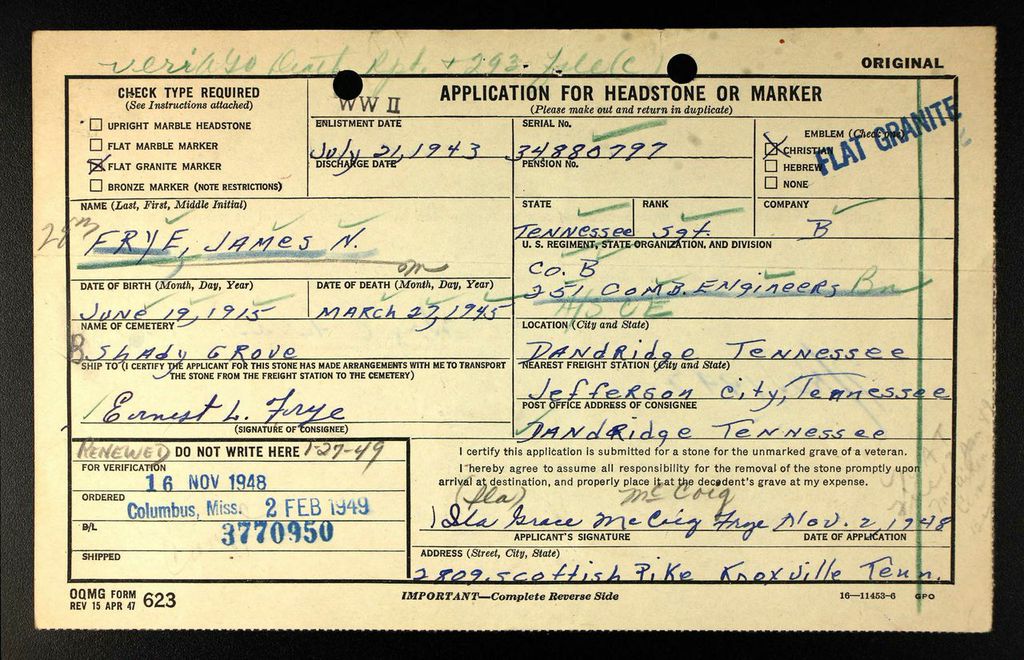 verif 90 Death Rpt. + 293 File
ORIGINAL
CHECK TYPE REQUIRED
(See Instructions attached)
UPRIGHT MARBLE HEADSTONE
FLAT MARBLE MARKER
FLAT GRANITE MARKER
BRONZE MARKER (NOTE RESTRICTIONS)
WW II
APPLICATION FOR HEADSTONE OR MARKER
(Please make out and return in duplicate)
ENLISTMENT DATE
July 21, 1943
DISCHARGE DATE
SERIAL No.
34880797
PENSION No.
EMBLEM (Check one)
CHRISTIAN
HEBREW
NONE
FLAT GRANITE
NAME (Last, First, Middle Initial)
FRYE, JAMES N.
STATE
Tennessee
RANK
Sgt.
COMPANY
B
U. S. REGIMENT, STATE ORGANIZATION, AND DIVISION
Co. B
251 COMB. ENgiNeeRs Bn
DATE OF BIRTH (Month, Day, Year)
JUNE 19, 1915
DATE OF DEATH (Month, Day, Year)
MARCH 27, 1945
NAME OF CEMETERY
Shady GROVE
LOCATION (City and State)
DANdRidge Tennessee
SHIP TO (I CERTIFY THE APPLICANT FOR THIS STONE HAS MADE ARRANGEMENTS WITH ME TO TRANSPORT
THE STONE FROM THE FREIGHT STATION TO THE CEMETERY)
Ernest L. Frye
(SIGNATURE OF CONSIGNEE)
NEAREST FREIGHT STATION (City and State)
Jefferson City, Tennessee
POST OFFICE ADDRESS OF CONSIGNEE
DANdRidge Tennessee
RENEWED DO NOT WRITE HERE 1-27-49
FOR VERIFICATION
16 NOV 1948
ORDERED
Columbus, Miss. 2 FEB 1949
B/L
3770950
SHIPPED
I certify this application is submitted for a stone for the unmarked grave of a veteran.
I hereby agree to assume all responsibility for the removal of the stone promptly upon
arrival at destination, and properly place it at the decedent's grave at my expense.
(Ila) McCoig
Ila Grace McCoig Frye Nov. 2, 1948
APPLICANT'S SIGNATURE
DATE OF APPLICATION
ADDRESS (Street, City, State)
2809. Scottish Pike Knoxville Tenn.
OQMG FORM
REV 15 APR 47 623
IMPORTANT—Complete Reverse Side
16—11453-6 GPO